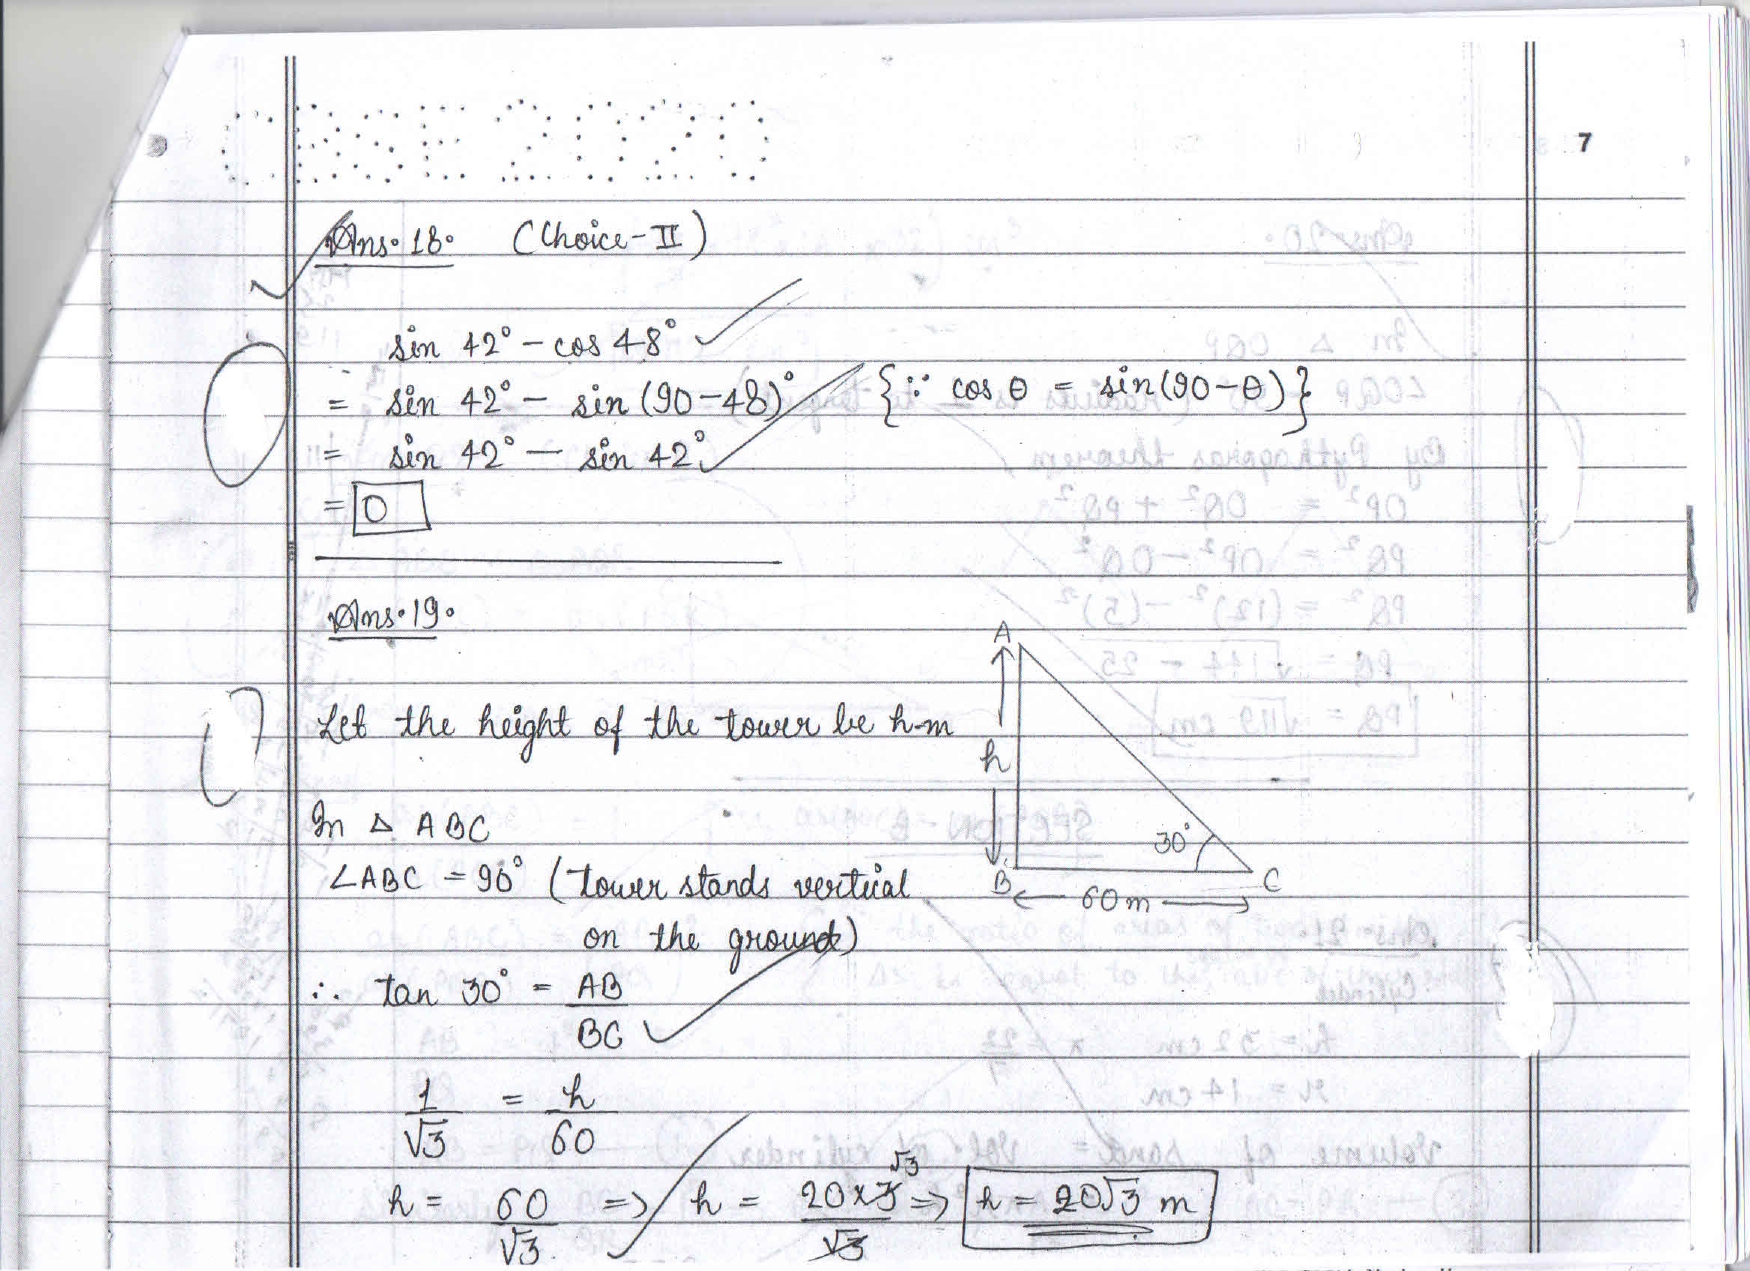 CBSE 2020
7
Ans. 18. (Choice-II)
sin 42° - cos 48°
= sin 42° - sin (90-48)° {∵ cos θ = sin(90-θ)}
= sin 42° - sin 42°
= 0
Ans. 19.
Let the height of the tower be h m
In △ ABC
∠ABC = 90° (tower stands vertical
on the ground)
∴ tan 30° = AB/BC
1/√3 = h/60
h = 60/√3 => h = 20×3/√3 √3 => h = 20√3 m
A
h
30°
B
60 m
C